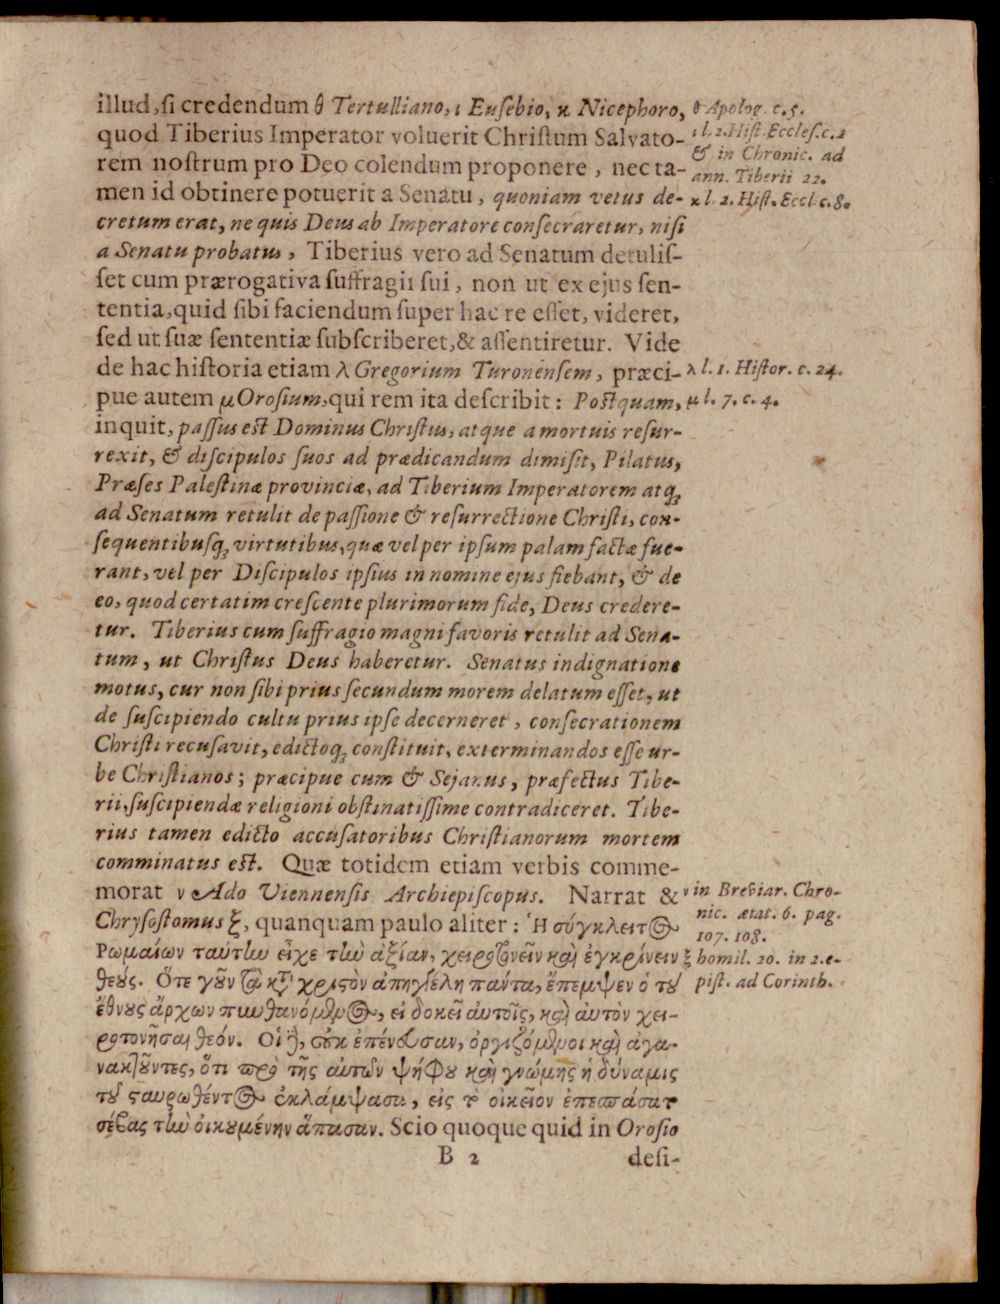 illud, si credendum θ Tertulliano, ι Eusebio, κ Nicephoro,
quod Tiberius Imperator voluerit Christum Salvato-
rem nostrum pro Deo colendum proponere, nec ta-
men id obtinere potuerit a Senatu, quoniam vetus de-
cretum erat, ne quis Deus ab Imperatore consecraretur, nisi
a Senatu probatus, Tiberius vero ad Senatum detulis-
set cum prærogativa suffragii sui, non ut ex ejus sen-
tentia, quid sibi faciendum super hac re esset, videret,
sed ut suæ sententiæ subscriberet, & assentiretur. Vide
de hac historia etiam λ Gregorium Turonensem, præci-
pue autem μ Orosium, qui rem ita describit: Postquam,
inquit, passus est Dominus Christus, atque a mortuis resur-
rexit, & discipulos suos ad prædicandum dimisit, Pilatus,
Præses Palestinæ provinciæ, ad Tiberium Imperatorem atq;
ad Senatum retulit de passione & resurrectione Christi, con-
sequentibusq; virtutibus, quæ vel per ipsum palam factæ fue-
rant, vel per Discipulos ipsius in nomine ejus fiebant, & de
eo, quod certatim crescente plurimorum fide, Deus credere-
tur. Tiberius cum suffragio magni favoris retulit ad Sena-
tum, ut Christus Deus haberetur. Senatus indignatione
motus, cur non sibi prius secundum morem delatum esset, ut
de suscipiendo cultu prius ipse decerneret, consecrationem
Christi recusavit, edictoq; constituit, exterminandos esse ur-
be Christianos; præcipue cum & Sejanus, præfectus Tibe-
rii, suscipiendæ religioni obstinatissime contradiceret. Tibe-
rius tamen edicto accusatoribus Christianorum mortem
comminatus est. Quæ totidem etiam verbis comme-
morat ν Ado Viennensis Archiepiscopus. Narrat &
Chrysostomus ξ, quanquam paulo aliter: Ἡ σύγκλειτος
Ρωμαίων ταύτην εἶχε τὴν ἀξίαν, χειροτονεῖν καὶ ἐγκρίνειν
θεούς. Ὅτε γοῦν τὰ κατὰ χριστὸν ἀπηγγέλη πάντα, ἔπεμψεν ὁ τοῦ
ἔθνους ἄρχων πυνθανόμενος, εἰ δοκεῖ αὐτοῖς, καὶ αὐτὸν χει-
ροτονῆσαι θεόν. Οἱ δὲ, οὐκ ἐπένευσαν, ὀργιζόμενοι καὶ ἀγα-
νακτοῦντες, ὅτι πρὸ τῆς αὐτῶν ψήφου καὶ γνώμης ἡ δύναμις
τοῦ σταυρωθέντος ἐκλάμψασα, εἰς τὸ οἰκεῖον ἐπεσπάσατο
σέβας τὴν οἰκουμένην ἅπασαν. Scio quoque quid in Orosio
B 2 desi-
θ Apolog. c. 5.
ι l. 2. Hist. Eccles. c. 2
& in Chronic. ad
ann. Tiberii 22.
κ l. 2. Hist. Eccl. c. 8.
λ l. 1. Histor. c. 24.
μ l. 7. c. 4.
ν in Breviar. Chro-
nic. ætat. 6. pag.
107. 108.
ξ homil. 20. in 2. e-
pist. ad Corinth.